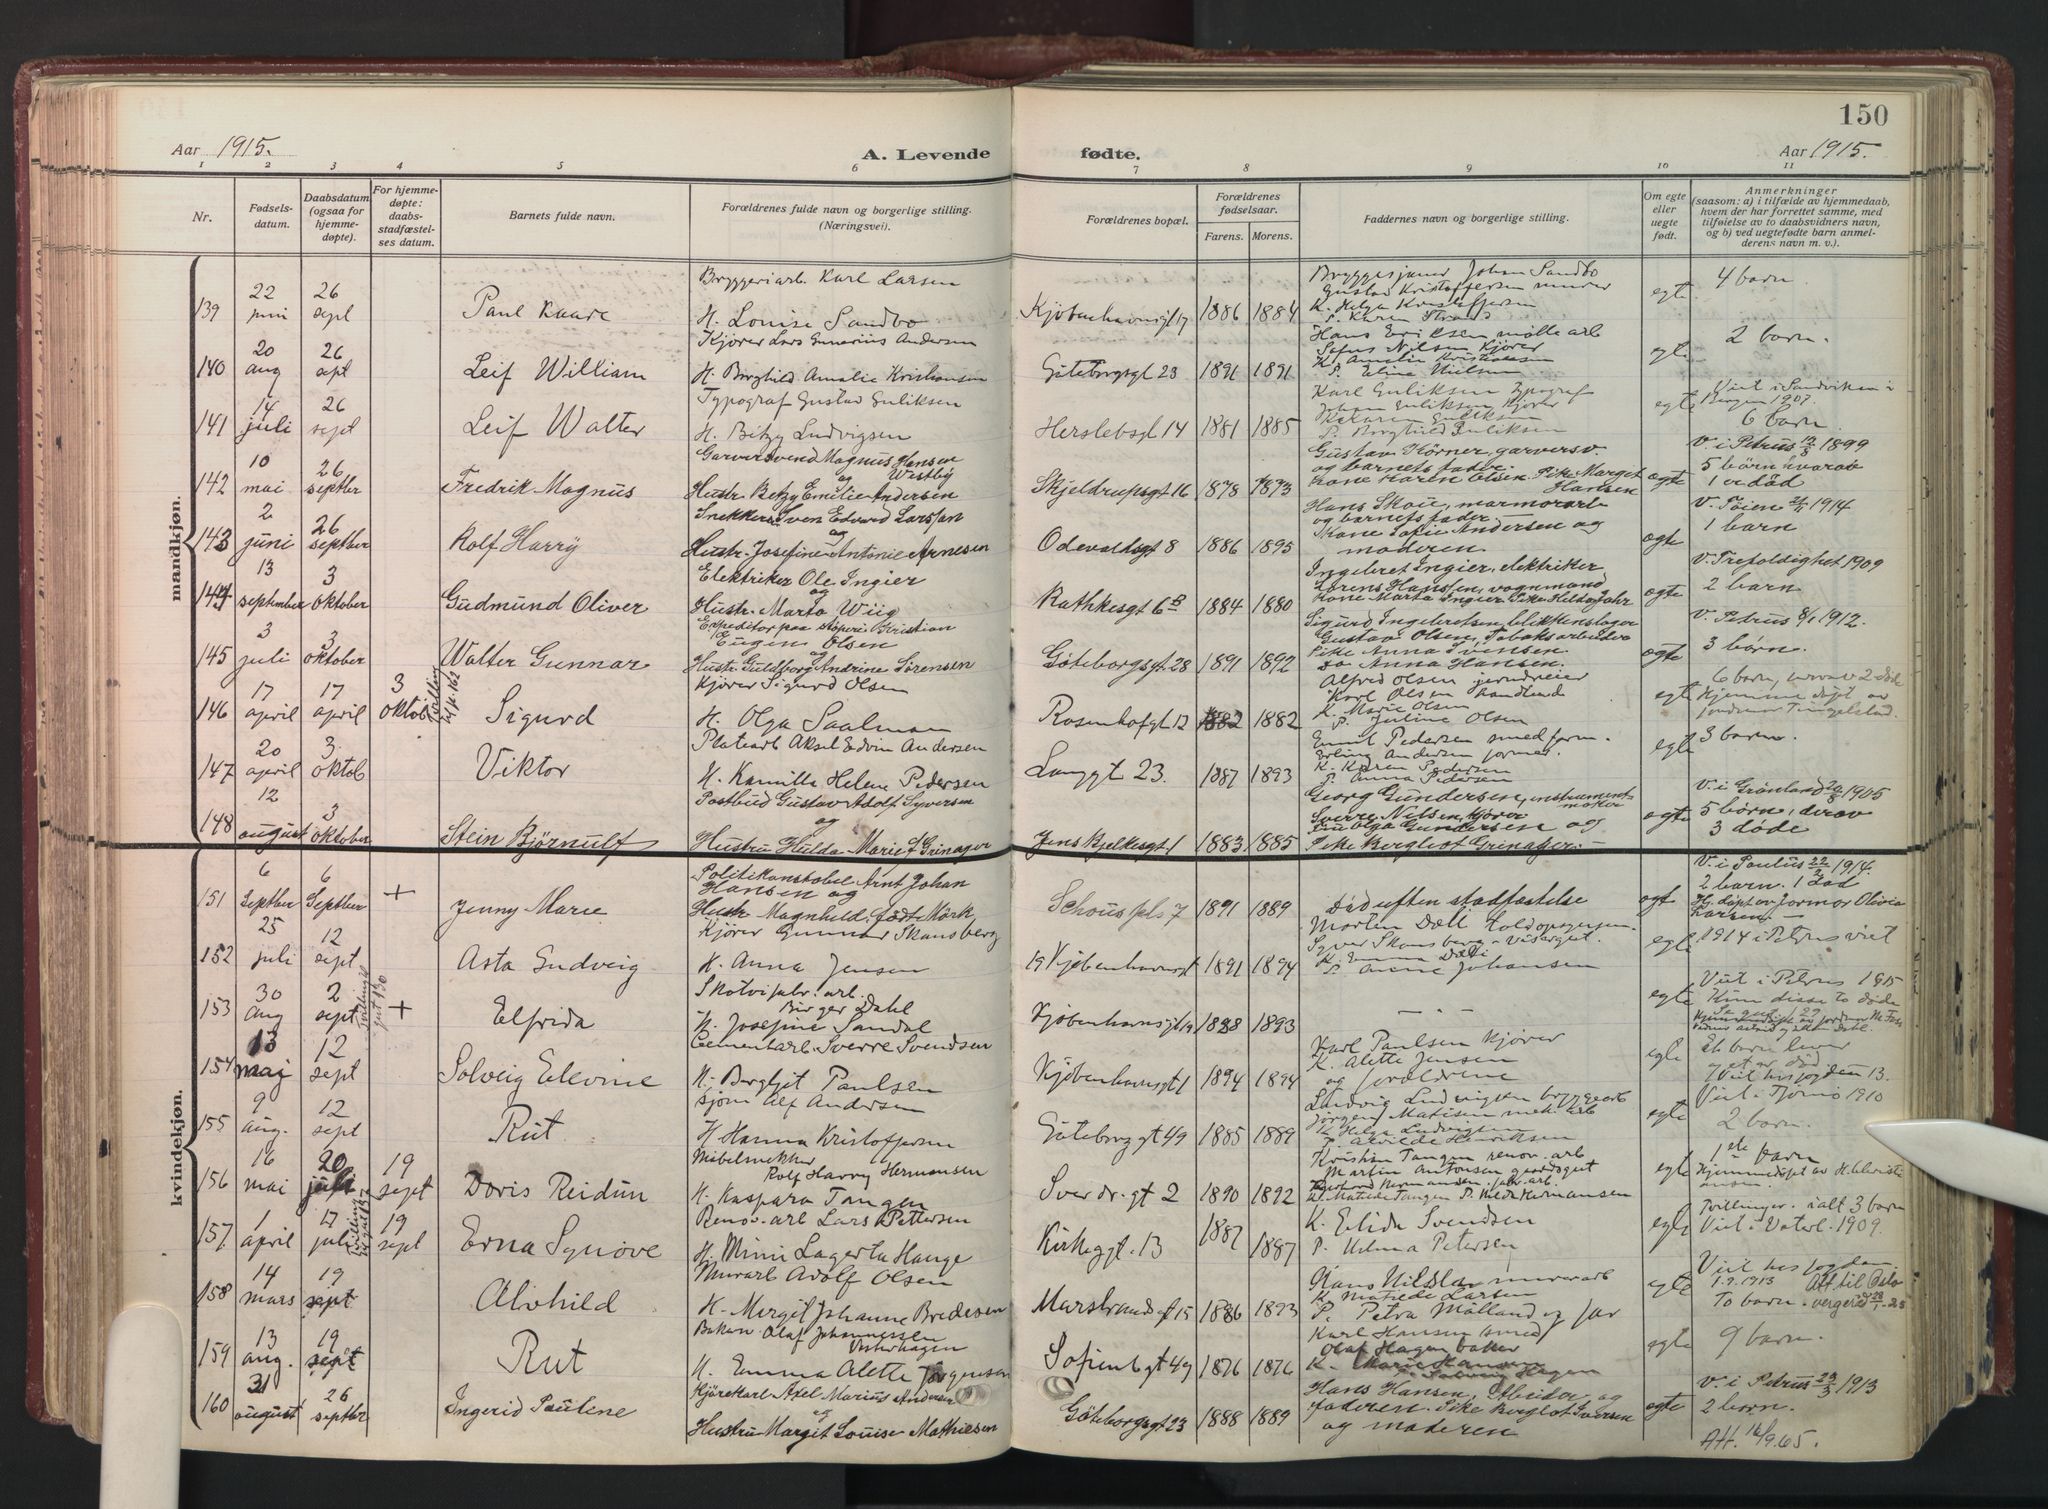 150
Aar 1915.
A. Levende
fødte.
Aar 1915.
1 2 3 4 5 6 7 8 9 10 11
Nr.
Fødsels-
datum.
Daabsdatum
(ogsaa for
hjemme-
døpte).
For hjemme-
døpte:
daabs-
stadfæstel-
ses datum.
Barnets fulde navn.
Forældrenes fulde navn og borgerlige stilling.
(Næringsvei).
Forældrenes bopæl.
Forældrenes
fødselsaar.
Farens. Morens.
Faddernes navn og borgerlige stilling.
Om egte
eller
uegte
født.
Anmerkninger
(saasom: a) i tilfælde av hjemmedaab,
hvem der har forrettet samme, med
tilføielse av to daabsvidners navn,
og b) ved uegtefødte barn anmel-
derens navn m. v.).
mandkjøn.
139
22
juni
26
sept
Paul Kaare
Bryggeriarb. Karl Larsen
H. Louise Sandbo
Kjøbenhavnsgt 17
1886 1884
Bryggesjauer Johan Sandbo
Gustav Kristoffersen murer
K. Helga Kristoffersen
egte
4 barn.
140
20
aug
26
sept
Leif William
Kjører Lars Gunerius Andersen
H. Borghild Amalie Kristiansen
Gøteborgsgt 23
1891 1891
Hans Eriksen mølle arb
Sofus Nilsen Kjører
K. Amalie Kristiansen
P. Eline Nielsen
egte
2 barn.
141
14
juli
26
sept
Leif Walter
Typograf Gustav Guliksen
H. Bitzy Ludvigsen
Herslebsgt 14
1881 1885
Karl Guliksen Typograf
Johan Guliksen Kjører
P. Borghild Guliksen
egte
Viet i Sandviken i
Bergen 1907.
6 barn.
142
10
mai
26
septbr
Fredrik Magnus
Garversvend Magnus Hansen
og Westby
Hustr. Betzy Emilie Andersen
Skjeldrupsgt 16
1878 1873
Gustav Körner, garversv.
og barnets fader.
Kone Karen Olsen. Pike Margit
Hansen
egte
v. i Petrus 1899
5 børn hvorav
1 er død
143
2
juni
26
septbr
Rolf Harry
Snekkers. Sven Edvard Larsson
og
Hustr. Josefine Antonie Arnesen
Odevaldsgt 8
1886 1895
Hans Skoie, marmorarb
og barnets fader
Kone Sofie Andersen og
moderen.
egte
v. Tøien 1914
1 barn
144
13
september
3
oktober
Gudmund Oliver
Elektriker Ole Ingier
og
Hustr. Marta Wiig
Rathkesgt 6 B
1884 1880
Ingebret Ingier, elektriker
Lorens Hanssen, vognmand
Kone Marta Ingier Pike Helda Jahr
egte
v. Trefoldighet 1909
2 barn.
145
3
juli
3
oktober
Walter Gunnar
Expeditør paa støperi Kristian
Eugen Olsen
og
Hustr. Guldborg Andrine Sørensen
Gøteborgsgt 28
1891 1892
Sigurd Ingebretsen, blikkenslager
Gustav Olsen, Tobaksarbeider
Pike Anna Svensen.
Do Anna Hansen.
egte
v. Petrus 8/1 1912.
3 børn.
146
17
april
17
april
3
oktob
Tvilling
til pk. 162
Sigurd
Kjører Sigurd Olsen
H. Olga Saalman
Rosenhofgt 12
1882 1882
Alfred Olsen jerndreier
Karl Olsen handlende
K. Marie Olsen
P. Juline Olsen
egte
6 barn, hvorav 2 døde
Hjemme døpt av
jordmor Tingelstad.
147
20
april
3
oktob
Viktor
Platearb Aksel Edvin Andersen
H. Kamilla Helene Pedersen
Langgt 23.
1887 1893
Emil Pedersen smed form.
Erling Andersen former.
K. Karen Pedersen
P. Anna Pedersen
egte
3 barn.
148
12
august
3
oktober
Stein Bjørnulf
Postbud Gustav Adolf Syversen
og
Hustru Hulda Marie f Grinager
Jens Bjelkesgt 1
1883 1885
Georg Gundersen, instrument-
maker
Sverre Nilsen, kjører
Fru Olga Gundersen og
Pike Bergliot Grinager.
egte
v. i Grønland 20/8 1905
5 børn, derav
3 døde
kvindekjøn.
151
6
Septbr
6
Septbr
+
Jenny Marie
Politikonstabel Arnt Johan
Hansen og
Hustr. Magnhild født Mørk
Schous pls 7
1891 1889
Død uften stadfæstelse
egt
v. i Paulus 22/2 1914.
2 barn. 1 død
Hj. døpt av Jormor Olivia
Larsen.
152
25
juli
12
sept
Asta Gudveig
Kjører Gunnar Skansberg
H. Anna Jensen
19 Kjøbenhavnsgt
1891 1894
Morten Dæli toldopsynsm.
Syver Skansberg - visergut.
K. Emma Dæli
P. Anne Johansen
egte
1914 i Petrus viet
153
30
aug
2
sept
Tvilling til
gut 130
+
Elfrida
Skotviabr. arb.
Birger Dahl
H. Josefine Sandal
Kjøbenhavnsgt 19
1888 1893
— . —
egte
Viet i Petrus 1915
Kun disse to døde
154
13
maj
12
sept
Solveig Elevine
Cementarb. Sverre Svendsen
H. Bergljot Paulsen
Kjøbenhavnsgt 1
1894 1894
Karl Paulsen Kjører
K. Alette Jensen
og forældrene
egte
Et barn lever
et er død
Viet hos fogden 13.
155
9
aug.
12
sept
Rut
sjøm Alf Andersen
H Hanna Kristoffersen
Gøteborg gt 49
1885 1889
Ludvig Ludvigsen bryggearb
Jørgen Matisen mek arb
K Helga Ludvigsen
P. Alvilde Henriksen
egte
Viet i Tjømø 1910
2 barn.
156
16
mai
20
juli
19
sept
Doris Reidun
Møbelsnekker
Rolf Harry Hermansen
H. Kaspara Tangen
Sverdr.gt 2
1890 1892
Kristian Tangen renov. arb
Martin Antonsen gaardsgut
K. Matilde Tangen P. Hilda Hermansen
egte
1ste barn
Hjemmedøpt av H. Christi
ansen.
157
1
april
17
juli
Tvilling
19
sept
Erna Synøve
Renov. arb Lars Pettersen
H. Mimi Lagerta Hauge
Kirkegt. 13
1887 1887
K. Elida Svendsen
P. Helma Petersen
egte
Tvillinger. ialt 3 barn
Viet i Vaterl. 1909.
158
14
mars
19
sept
Alvhild
Murarb Adolf Olsen
H. Margit Johanne Bredesen
Marstrandsgt 15
1886 1893
Hans Nilsen murerarb
K Matilde Larsen
P. Petra Mølland og far
egte
Viet hos fogden
1.9.1913 Att til Oslo
To barn. vergeråd 28/1.25
159
13
aug.
19
sept
Rut
Baker Olaf Johannessen
Østerhagen
H. Emma Alette Jørgensen
Sofienbgt 49
1876 1876
Karl Hansen smed
Olaf Hagen baker
K. Marie Hansen
P. Solveig Hagen
egte
9 barn.
160
31
august
26
septbr
Ingerid Pauline
Kjørekarl Axel Marius Andersen
og
Hustru Margit Louise Mathiesen
Gøteborgsgt 23
1888 1889
Hans Hansen, Arbeider og
faderen. Pike Bergliot Iversen
og moderen
egte
v. i Petrus 23/3 1913
2 barn.
Att. 16/9.65.